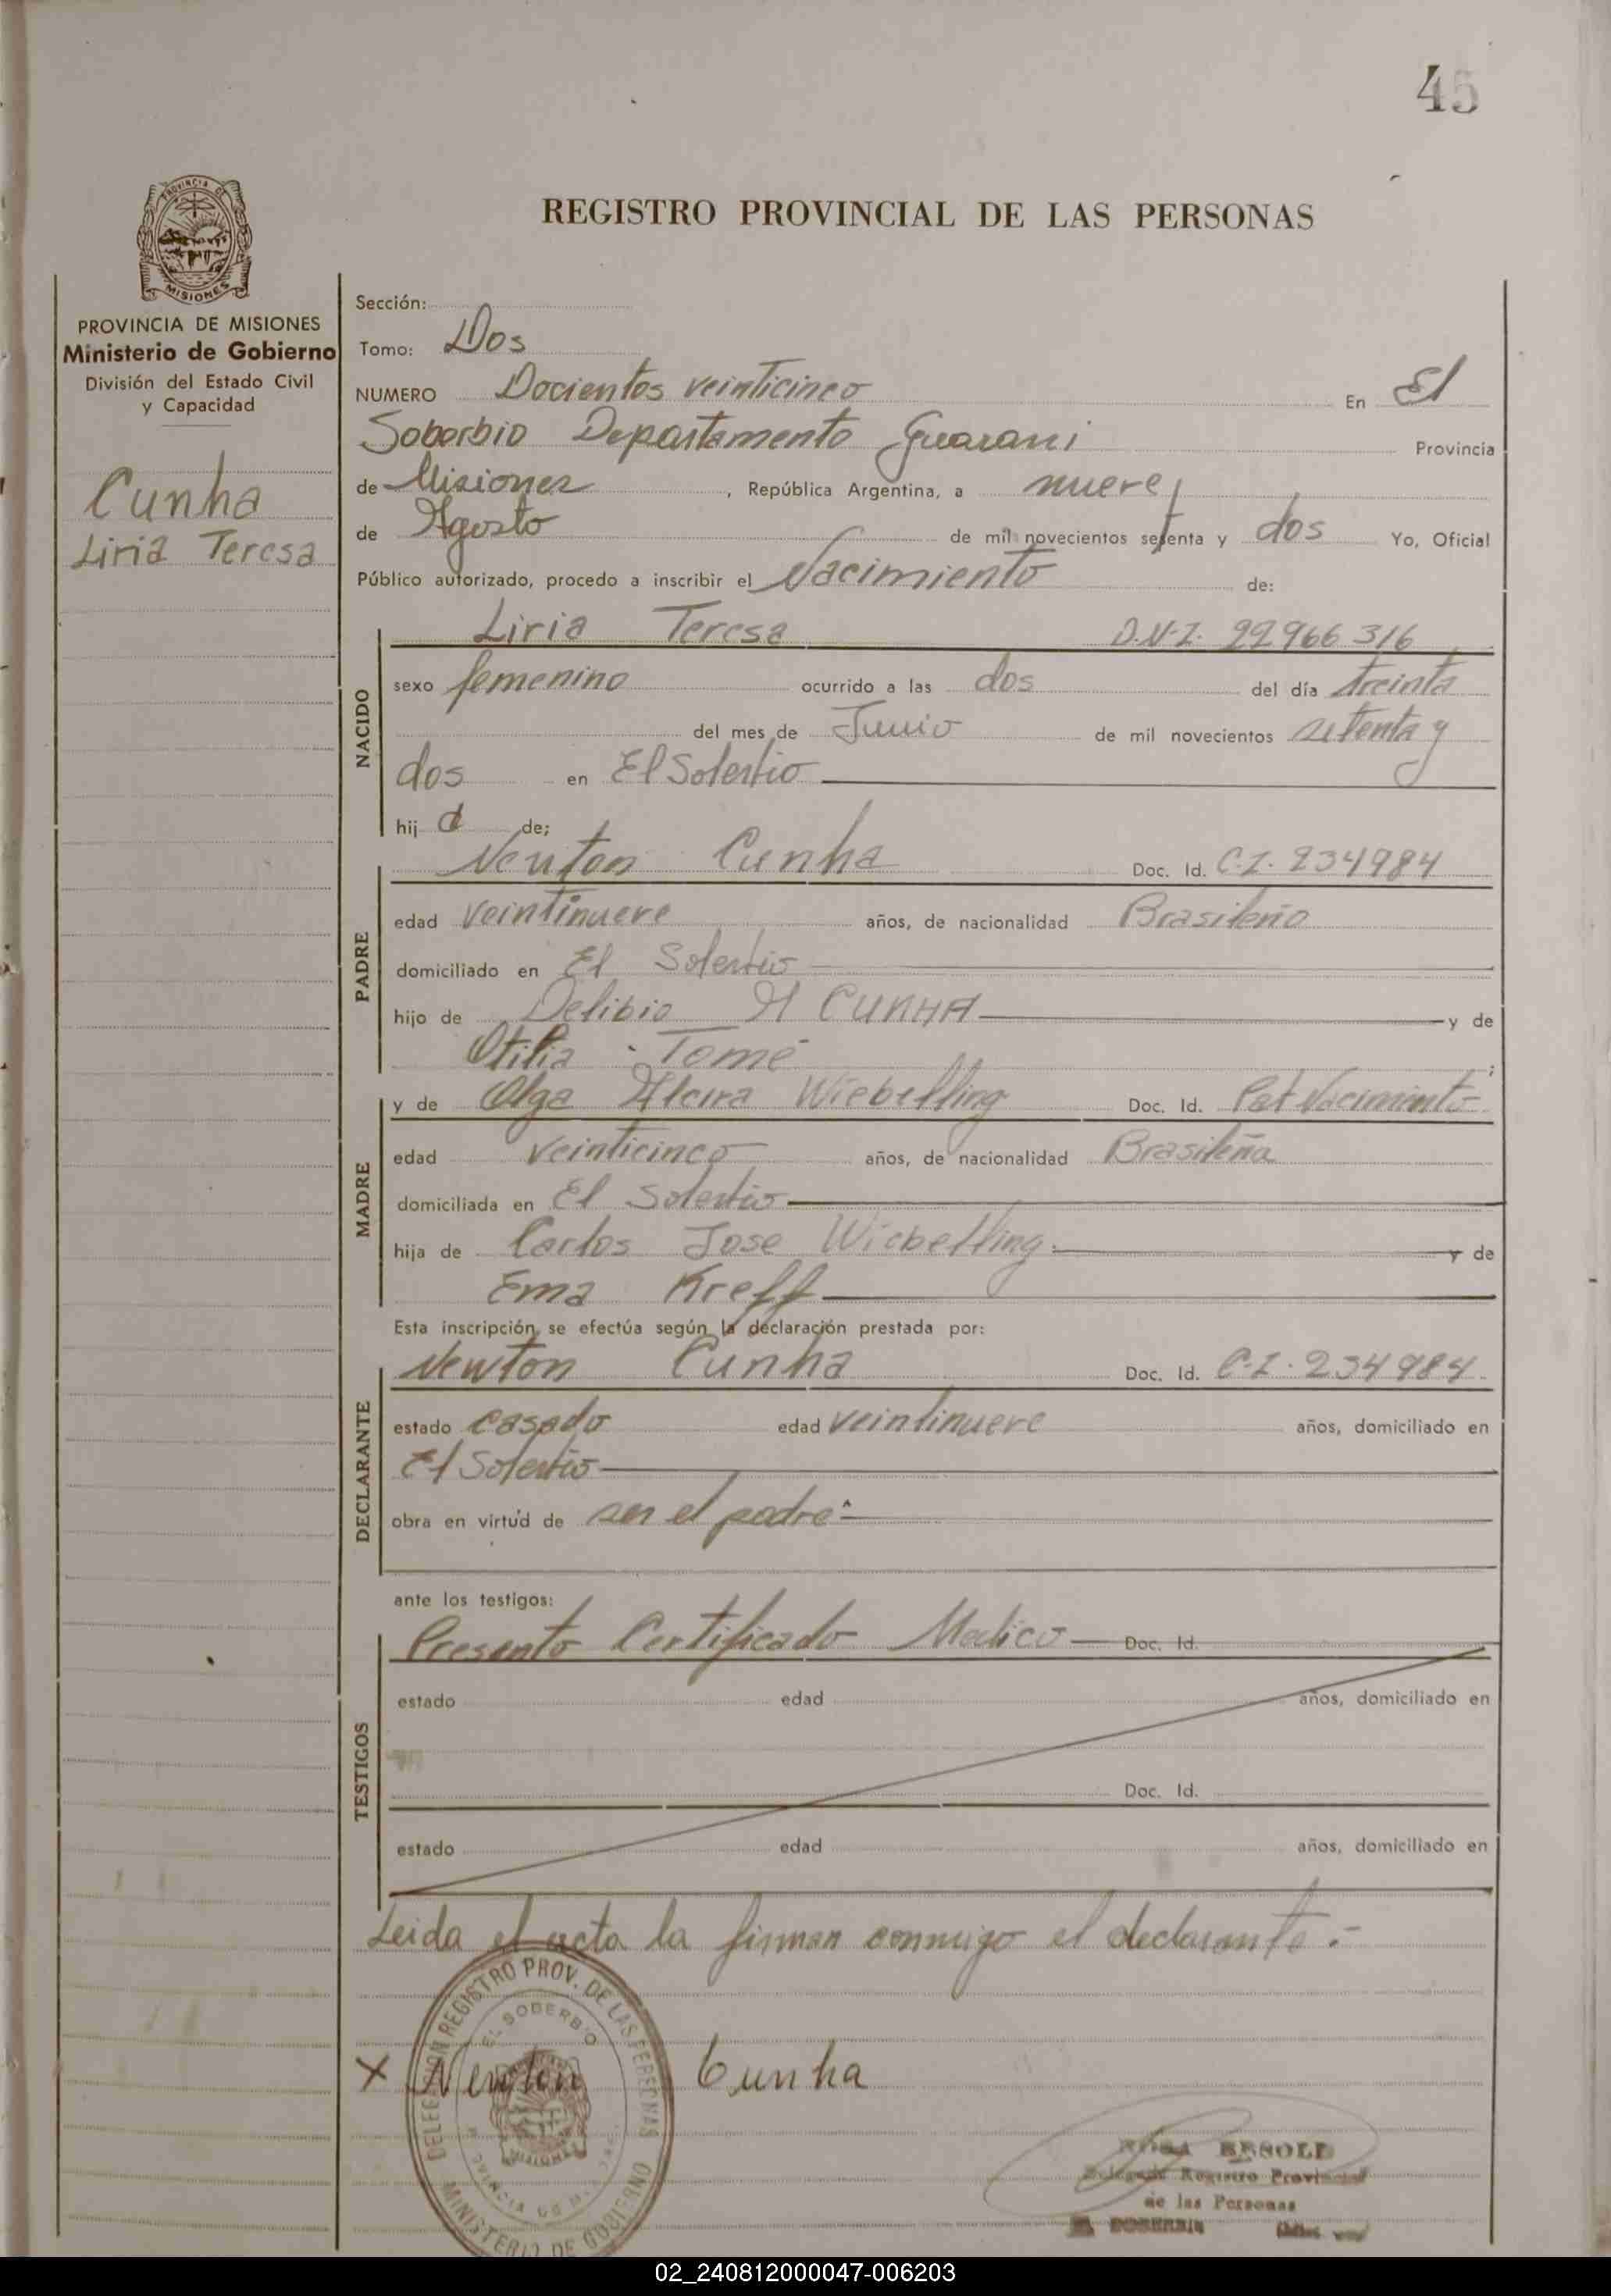 45
REGISTRO PROVINCIAL DE LAS PERSONAS
PROVINCIA DE MISIONES
Ministerio de Gobierno
División del Estado Civil
y Capacidad
Cunha
Liria Teresa
Sección:
Tomo: Dos
NUMERO Docientos veinticinco En El
Soberbio Departamento Guarani Provincia
de Misiones, República Argentina, a nueve
de Agosto de mil novecientos setenta y dos Yo, Oficial
Público autorizado, procedo a inscribir el Nacimiento de:
NACIDO
Liria Teresa D.N.I. 22966316
sexo femenino ocurrido a las dos del día treinta
del mes de Junio de mil novecientos setenta y
dos en El Soberbio
hij a de;
PADRE
Newton Cunha Doc. Id. C.I. 234984
edad veintinueve años, de nacionalidad Brasileño
domiciliado en El Soberbio
hijo de Delibio A CUNHA y de
Otilia Tomé ;
MADRE
y de Olga Alcira Wiebelling Doc. Id. Nacimiento
edad veinticinco años, de nacionalidad Brasileña
domiciliada en El Soberbio
hija de Carlos Jose Wiebelling y de
Ema Kreff
Esta inscripción, se efectúa según la declaración prestada por:
DECLARANTE
Newton Cunha Doc. Id. C.I. 234984
estado casado edad veintinueve años, domiciliado en
El Soberbio
obra en virtud de ser el padre
ante los testigos:
TESTIGOS
Presento Certificado Medico Doc. Id.
estado edad años, domiciliado en
Doc. Id.
estado edad años, domiciliado en
Leida el acta la firman conmigo el declarante.-
DELEGACION REGISTRO PROV. DE LAS PERSONAS
EL SOBERBIO
MINISTERIO DE GOBIERNO
X Newton Cunha
ROSA
Delegada Registro Provincial
de las Personas
EL SOBERBIO
02_240812000047-006203